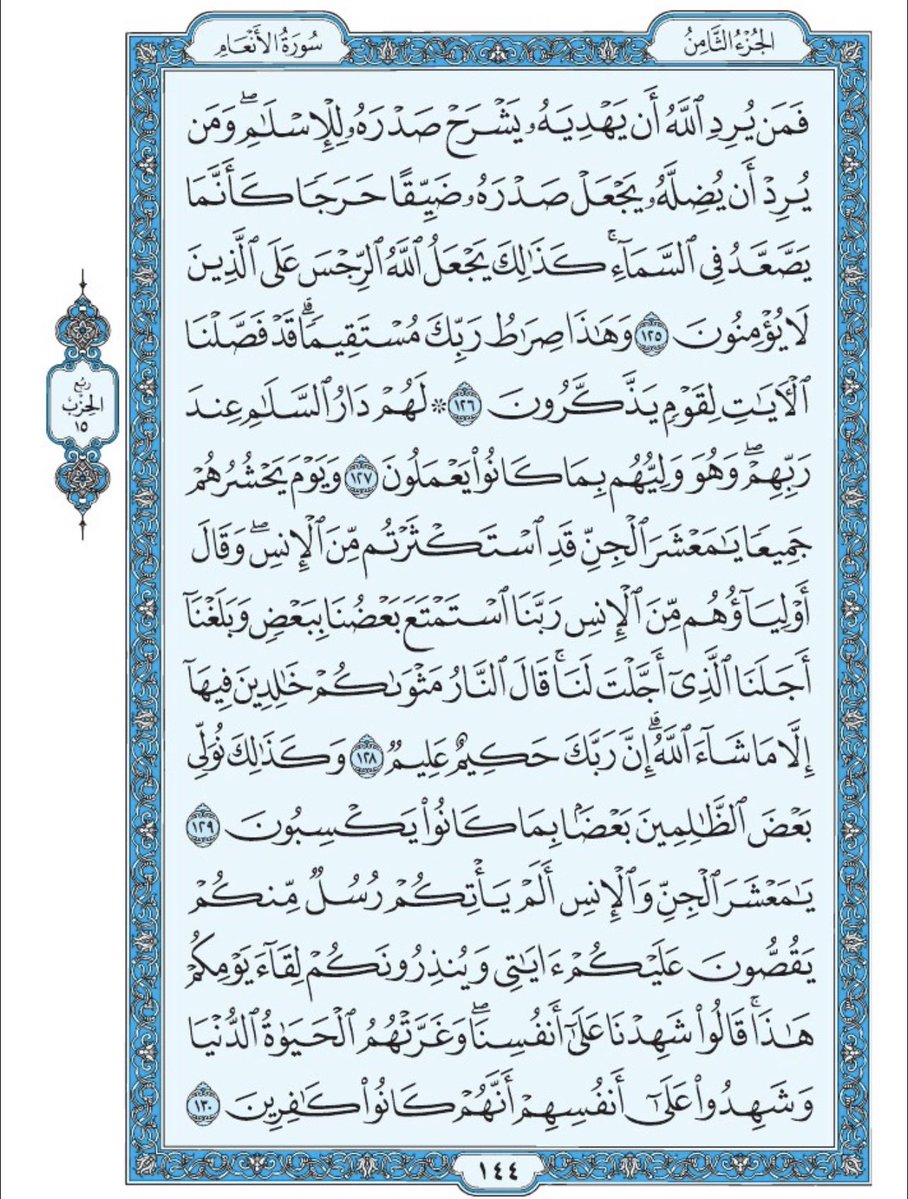 الجُزْءُ الثَّامِنُ
سُورَةُ الأَنْعَام
فَمَن يُرِدِ ٱللَّهُ أَن يَهْدِيَهُۥ يَشْرَحْ صَدْرَهُۥ لِلْإِسْلَٰمِۖ وَمَن
يُرِدْ أَن يُضِلَّهُۥ يَجْعَلْ صَدْرَهُۥ ضَيِّقًا حَرَجًا كَأَنَّمَا
يَصَّعَّدُ فِى ٱلسَّمَآءِۚ كَذَٰلِكَ يَجْعَلُ ٱللَّهُ ٱلرِّجْسَ عَلَى ٱلَّذِينَ
لَا يُؤْمِنُونَ ١٢٥ وَهَٰذَا صِرَٰطُ رَبِّكَ مُسْتَقِيمًاۗ قَدْ فَصَّلْنَا
ٱلْأٓيَٰتِ لِقَوْمٍ يَذَّكَّرُونَ ١٢٦ ۞ لَهُمْ دَارُ ٱلسَّلَٰمِ عِندَ
رَبِّهِمْۖ وَهُوَ وَلِيُّهُم بِمَا كَانُوا۟ يَعْمَلُونَ ١٢٧ وَيَوْمَ يَحْشُرُهُمْ
جَمِيعًا يَٰمَعْشَرَ ٱلْجِنِّ قَدِ ٱسْتَكْثَرْتُم مِّنَ ٱلْإِنسِۖ وَقَالَ
أَوْلِيَآؤُهُم مِّنَ ٱلْإِنسِ رَبَّنَا ٱسْتَمْتَعَ بَعْضُنَا بِبَعْضٍ وَبَلَغْنَآ
أَجَلَنَا ٱلَّذِىٓ أَجَّلْتَ لَنَاۚ قَالَ ٱلنَّارُ مَثْوَىٰكُمْ خَٰلِدِينَ فِيهَآ
إِلَّا مَا شَآءَ ٱللَّهُۗ إِنَّ رَبَّكَ حَكِيمٌ عَلِيمٌ ١٢٨ وَكَذَٰلِكَ نُوَلِّى
بَعْضَ ٱلظَّٰلِمِينَ بَعْضًۢا بِمَا كَانُوا۟ يَكْسِبُونَ ١٢٩
يَٰمَعْشَرَ ٱلْجِنِّ وَٱلْإِنسِ أَلَمْ يَأْتِكُمْ رُسُلٌ مِّنكُمْ
يَقُصُّونَ عَلَيْكُمْ ءَايَٰتِى وَيُنذِرُونَكُمْ لِقَآءَ يَوْمِكُمْ
هَٰذَاۚ قَالُوا۟ شَهِدْنَا عَلَىٰٓ أَنفُسِنَاۖ وَغَرَّتْهُمُ ٱلْحَيَوٰةُ ٱلدُّنْيَا
وَشَهِدُوا۟ عَلَىٰٓ أَنفُسِهِمْ أَنَّهُمْ كَانُوا۟ كَٰفِرِينَ ١٣٠
رُبُع
الحِزْب
١٥
١٤٤